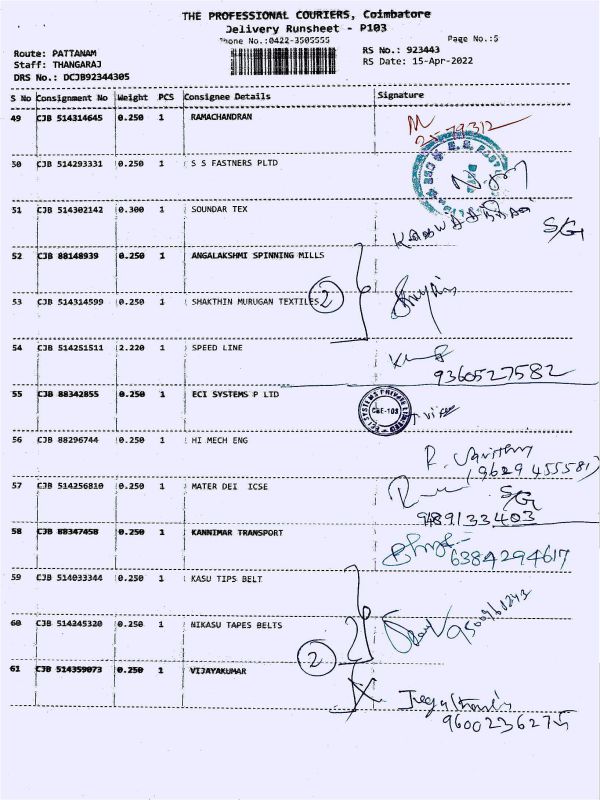 THE PROFESSIONAL COURIERS, Coimbatore
Delivery Runsheet - P103
Phone No.:0422-3505555
Page No.:5
Route: PATTANAM
RS No.: 923443
Staff: THANGARAJ
RS Date: 15-Apr-2022
DRS No.: DCJB92344305
S No Consignment No Weight PCS Consignee Details Signature
49 CJB 514314645 0.250 1 RAMACHANDRAN
50 CJB 514293331 0.250 1 S S FASTNERS PLTD
51 CJB 514302142 0.300 1 SOUNDAR TEX
S/G
52 CJB 88148939 0.250 1 ANGALAKSHMI SPINNING MILLS
2
53 CJB 514314599 0.250 1 SHAKTHIN MURUGAN TEXTILES
54 CJB 514251511 2.220 1 SPEED LINE
9360527582
55 CJB 88342855 0.250 1 ECI SYSTEMS P LTD
ECI SYSTEMS Private LIMITED
CBE-103
56 CJB 88296744 0.250 1 HI MECH ENG
(9629 455581)
57 CJB 514256810 0.250 1 MATER DEI ICSE
S/G
9489133403
58 CJB 88347458 0.250 1 KANNIMAR TRANSPORT
6384294617
59 CJB 514033344 0.250 1 KASU TIPS BELT
60 CJB 514245320 0.250 1 NIKASU TAPES BELTS
2
61 CJB 514359073 0.250 1 VIJAYAKUMAR
9600236275